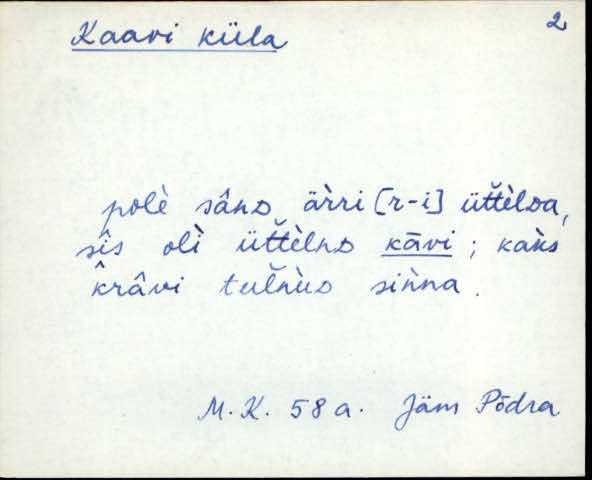 2
Kaavi küla
polè sânD ä̀rri [r-i] ütt̆èlDa,
sîs olì ütt̆èlnD kāvi ; kaǹs
k̂râvi tul̆nùD siǹna.
M.K. 58 a. Jäm Põdra